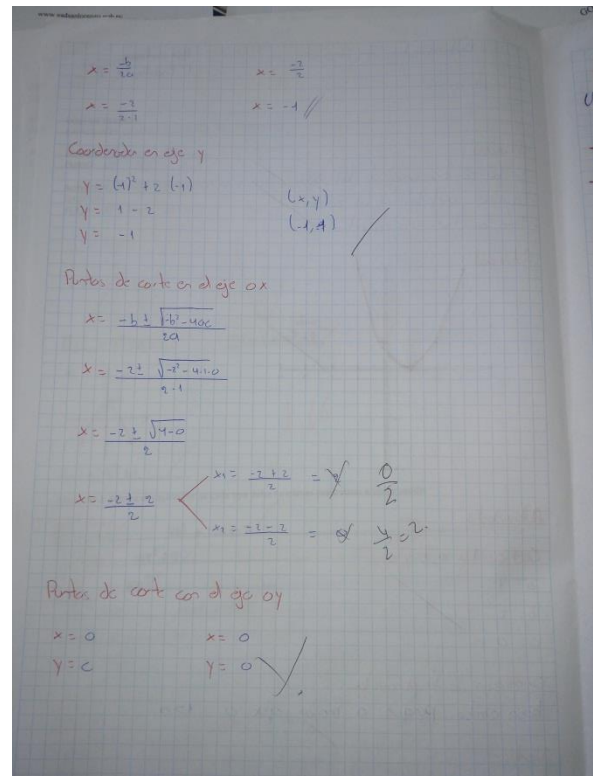 x = -b/2a x = -2/2
x = -2/2·1 x = -1
Coordenada en eje y
y = (-1)² + 2 (-1)
y = 1 - 2 (x, y)
y = -1
Puntos de corte en el eje ox
x = -b ± √-b² - 4ac / 2a
x = -2 ± √-2² - 4·1·0 / 2·1
x = -2 ± √4-0 / 2
x = -2 ± 2 / 2
x₁ = -2 + 2 / 2 = 0/2
x₂ = -2 - 2 / 2 = 4/2 = 2.
Puntos de corte con el eje oy
x = 0 x = 0
y = c y = 0